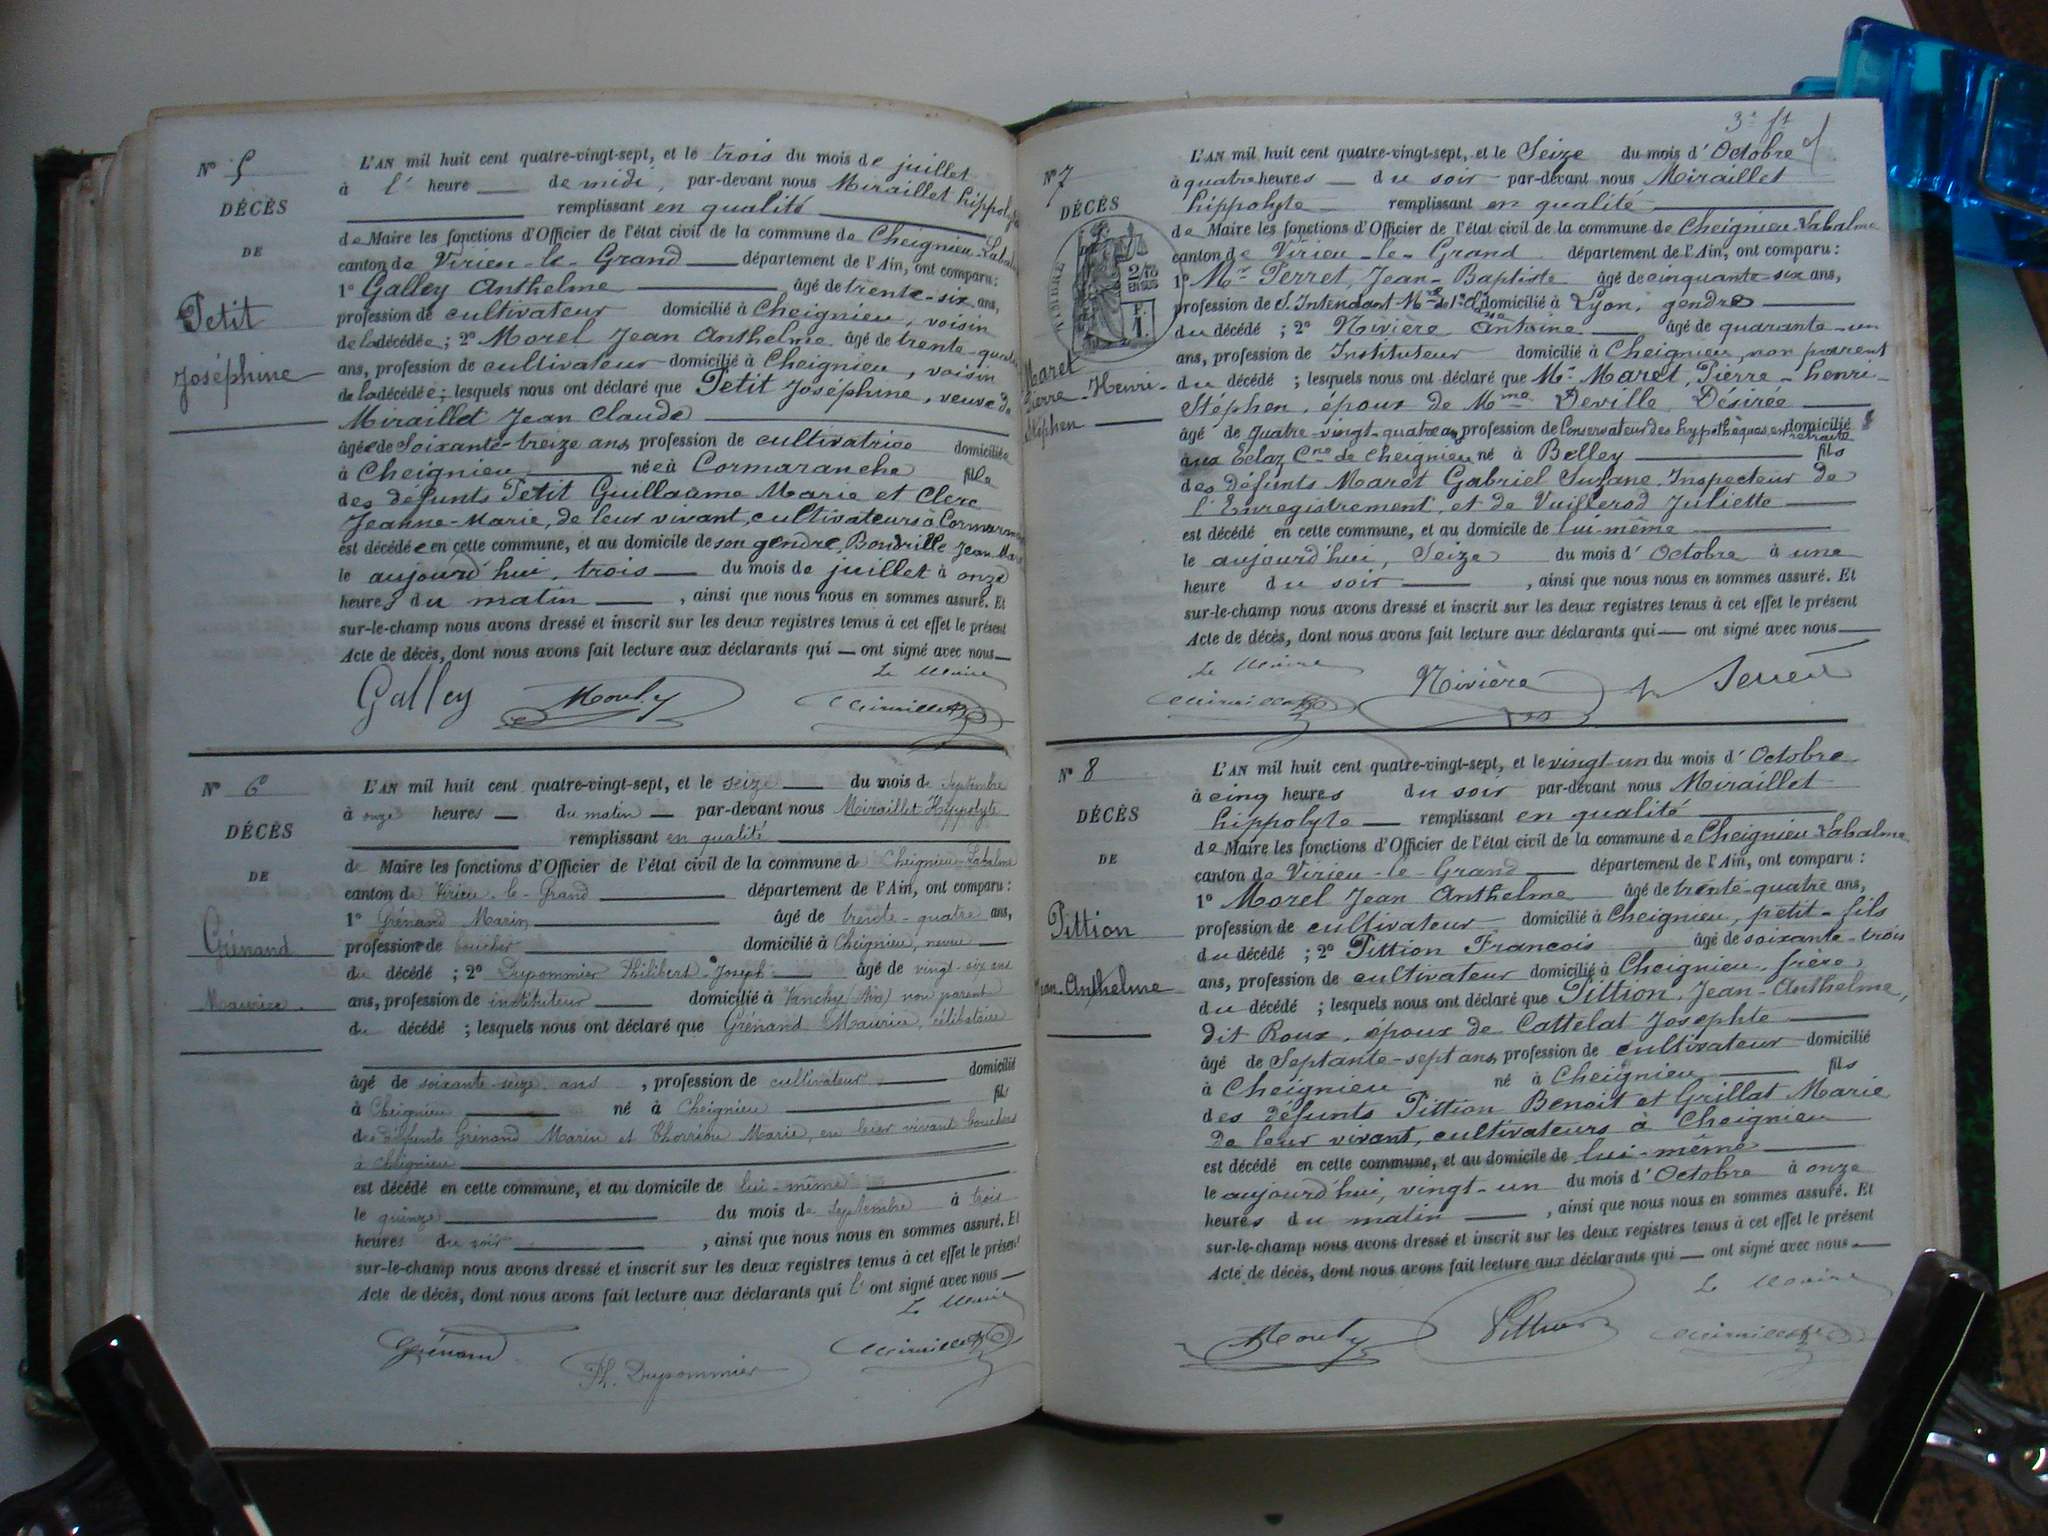 N° 5
DÉCÈS
DE
Petit
Joséphine
L'AN mil huit cent quatre-vingt-sept, et le trois du mois de juillet
à l' heure de midi, par-devant nous Miraillet hippolyte
remplissant en qualité
de Maire les fonctions d'Officier de l'état civil de la commune de Cheignieu-Labalme
canton de Virieu-le-Grand département de l'Ain, ont comparu:
1° Galley Anthelme âgé de trente-six ans,
profession de cultivateur domicilié à Cheignieu, voisin
de la décédée; 2° Morel Jean Anthelme âgé de trente-quatre
ans, profession de cultivateur domicilié à Cheignieu, voisin
de la décédée; lesquels nous ont déclaré que Petit Joséphine, veuve de
Miraillet Jean Claude
âgée de Soixante-treize ans, profession de cultivatrice domiciliée
à Cheignieu née à Cormaranche fille
des défunts Petit Guillaume Marie et Clerc
Jeanne-Marie, de leur vivant, cultivateurs à
est décédée en cette commune, et au domicile de son gendre, Jean
le aujourd'hui, trois du mois de juillet à onze
heures du matin, ainsi que nous nous en sommes assuré. Et
sur-le-champ nous avons dressé et inscrit sur les deux registres tenus à cet effet le présent
Acte de décès, dont nous avons fait lecture aux déclarants qui ont signé avec nous
Le Maire
Galley Miraillet
N° 6
DÉCÈS
DE
Grénand
Maurice.
L'AN mil huit cent quatre-vingt-sept, et le seize du mois de Septembre
à onze heures du matin par-devant nous Miraillet Hippolyte
remplissant en qualité
de Maire les fonctions d'Officier de l'état civil de la commune de Cheignieu-Labalme
canton de Virieu-le-Grand département de l'Ain, ont comparu:
1° Grénand Marin âgé de trente-quatre ans,
profession de boucher domicilié à Cheignieu, neveu
du décédé; 2° Dupommier Philibert-Joseph âgé de vingt-six ans
ans, profession de instituteur domicilié à (Ain) non parent
du décédé; lesquels nous ont déclaré que Grénand Maurice, célibataire
âgé de soixante-seize ans, profession de cultivateur domicilié
à Cheignieu né à Cheignieu fils
des défunts Grénand Marin et Marie, en leur vivant bouchers
à Cheignieu
est décédé en cette commune, et au domicile de lui-même
le quinze du mois de Septembre à trois
heures du soir, ainsi que nous nous en sommes assuré. Et
sur-le-champ nous avons dressé et inscrit sur les deux registres tenus à cet effet le présent
Acte de décès, dont nous avons fait lecture aux déclarants qui l' ont signé avec nous
Le Maire
Grénand Ph. Dupommier Miraillet
3e ft
N° 7
DÉCÈS
TIMBRE
2/10
EN SUS
Maret
Pierre-Henri-
Stéphen
L'AN mil huit cent quatre-vingt-sept, et le Seize du mois d'Octobre
à quatre heures du soir par-devant nous Miraillet
hippolyte remplissant en qualité
de Maire les fonctions d'Officier de l'état civil de la commune de Cheignieu-Labalme
canton de Virieu-le-Grand département de l'Ain, ont comparu:
1° Mr Perret, Jean-Baptiste âgé de cinquante-six ans,
profession de S. Intendant Mre de 1re domicilié à Lyon, gendre
du décédé; 2° Rivière Antoine âgé de quarante-un
ans, profession de Instituteur domicilié à Cheignieu, non parent
du décédé; lesquels nous ont déclaré que Mr Maret, Pierre-henri-
Stéphen, époux de Mme Deville Désirée
âgé de quatre-vingt-quatre ans, profession de Conservateur des hypothèques en retraite domicilié
aux Eclaz Cne de Cheignieu né à Belley fils
des défunts Maret Gabriel Suzane, Inspecteur de
l'Enregistrement, et de Vuillerod Juliette
est décédé en cette commune, et au domicile de lui-même
le aujourd'hui, Seize du mois d'Octobre à une
heure du soir, ainsi que nous nous en sommes assuré. Et
sur-le-champ nous avons dressé et inscrit sur les deux registres tenus à cet effet le présent
Acte de décès, dont nous avons fait lecture aux déclarants qui ont signé avec nous
Le Maire
Miraillet Rivière Perret
N° 8
DÉCÈS
DE
Pittion
Jean-Anthelme
L'AN mil huit cent quatre-vingt-sept, et le vingt-un du mois d'Octobre
à cinq heures du soir par-devant nous Miraillet
hippolyte remplissant en qualité
de Maire les fonctions d'Officier de l'état civil de la commune de Cheignieu-Labalme
canton de Virieu-le-Grand département de l'Ain, ont comparu:
1° Morel Jean Anthelme âgé de trente-quatre ans,
profession de cultivateur domicilié à Cheignieu, petit-fils
du décédé; 2° Pittion François âgé de soixante-trois
ans, profession de cultivateur domicilié à Cheignieu, frère
du décédé; lesquels nous ont déclaré que Pittion, Jean-Anthelme,
dit Roux, époux de Cattelat Josephte
âgé de Septante-sept ans, profession de cultivateur domicilié
à Cheignieu né à Cheignieu fils
des défunts Pittion Benoit et Grillat Marie
de leur vivant, cultivateurs à Cheignieu
est décédé en cette commune, et au domicile de lui-même
le aujourd'hui, vingt-un du mois d'Octobre à onze
heures du matin, ainsi que nous nous en sommes assuré. Et
sur-le-champ nous avons dressé et inscrit sur les deux registres tenus à cet effet le présent
Acte de décès, dont nous avons fait lecture aux déclarants qui ont signé avec nous
Le Maire
Pittion Miraillet